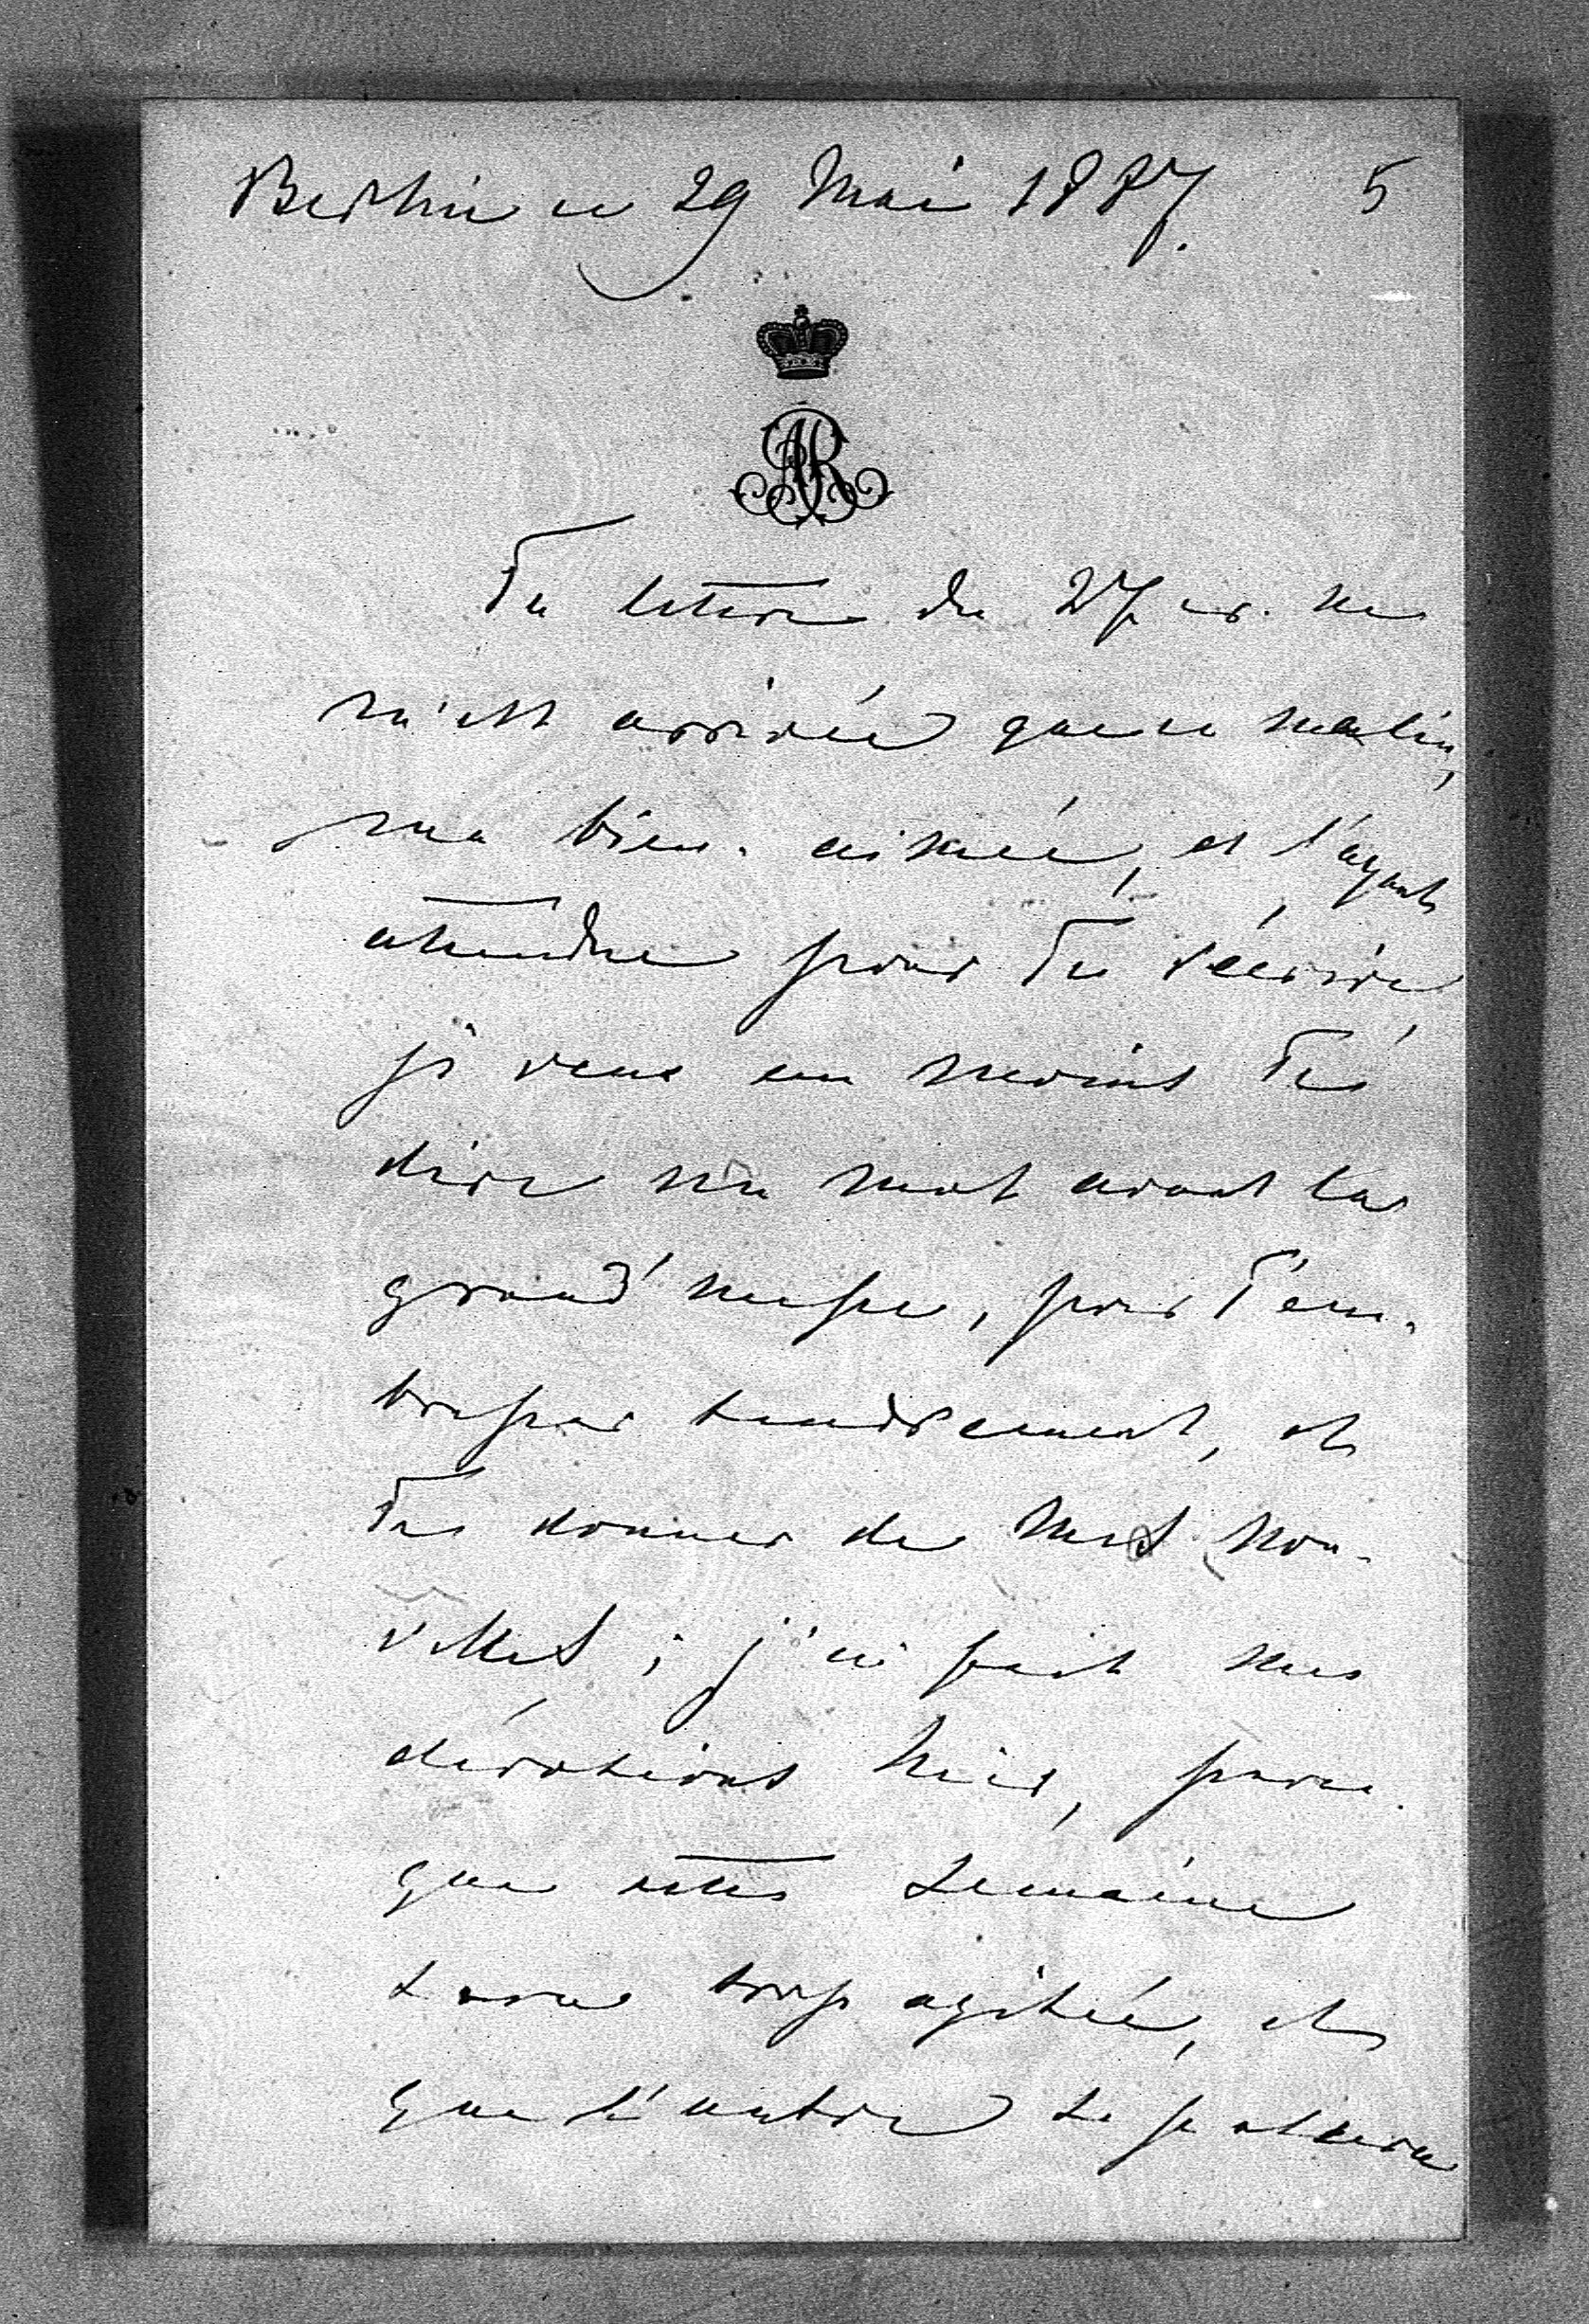 Berlin ce 29 Mai 1887. 5
AR
Ta lettre du 27 cr. ne
m'est arrivée que ce matin,
ma bien-aimée, et l'ayant
attendue pour Te récrire,
je veux au moins Te
dire un mot avant la
grand'messe, pour T'em-
brasser tendrement, et
Te donner de mes nou-
velles; j'ai fait mes
dévotions hier, parce
que cette semaine
sera trop agitée, et
que l'autre se passera